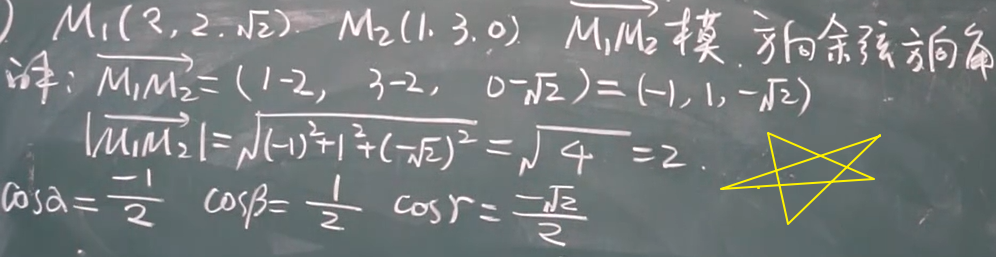 ) M₁(2, 2, √2). M₂(1, 3, 0) $\overrightarrow{M_1M_2}$ 模. 方向余弦方向角
解: $\overrightarrow{M_1M_2}$ = (1-2, 3-2, 0-√2) = (-1, 1, -√2)
|$\overrightarrow{M_1M_2}$| = $\sqrt{(-1)^2+1^2+(-\sqrt{2})^2}$ = $\sqrt{4}$ = 2.
cosα = $\frac{-1}{2}$ cosβ = $\frac{1}{2}$ cosγ = $\frac{-\sqrt{2}}{2}$